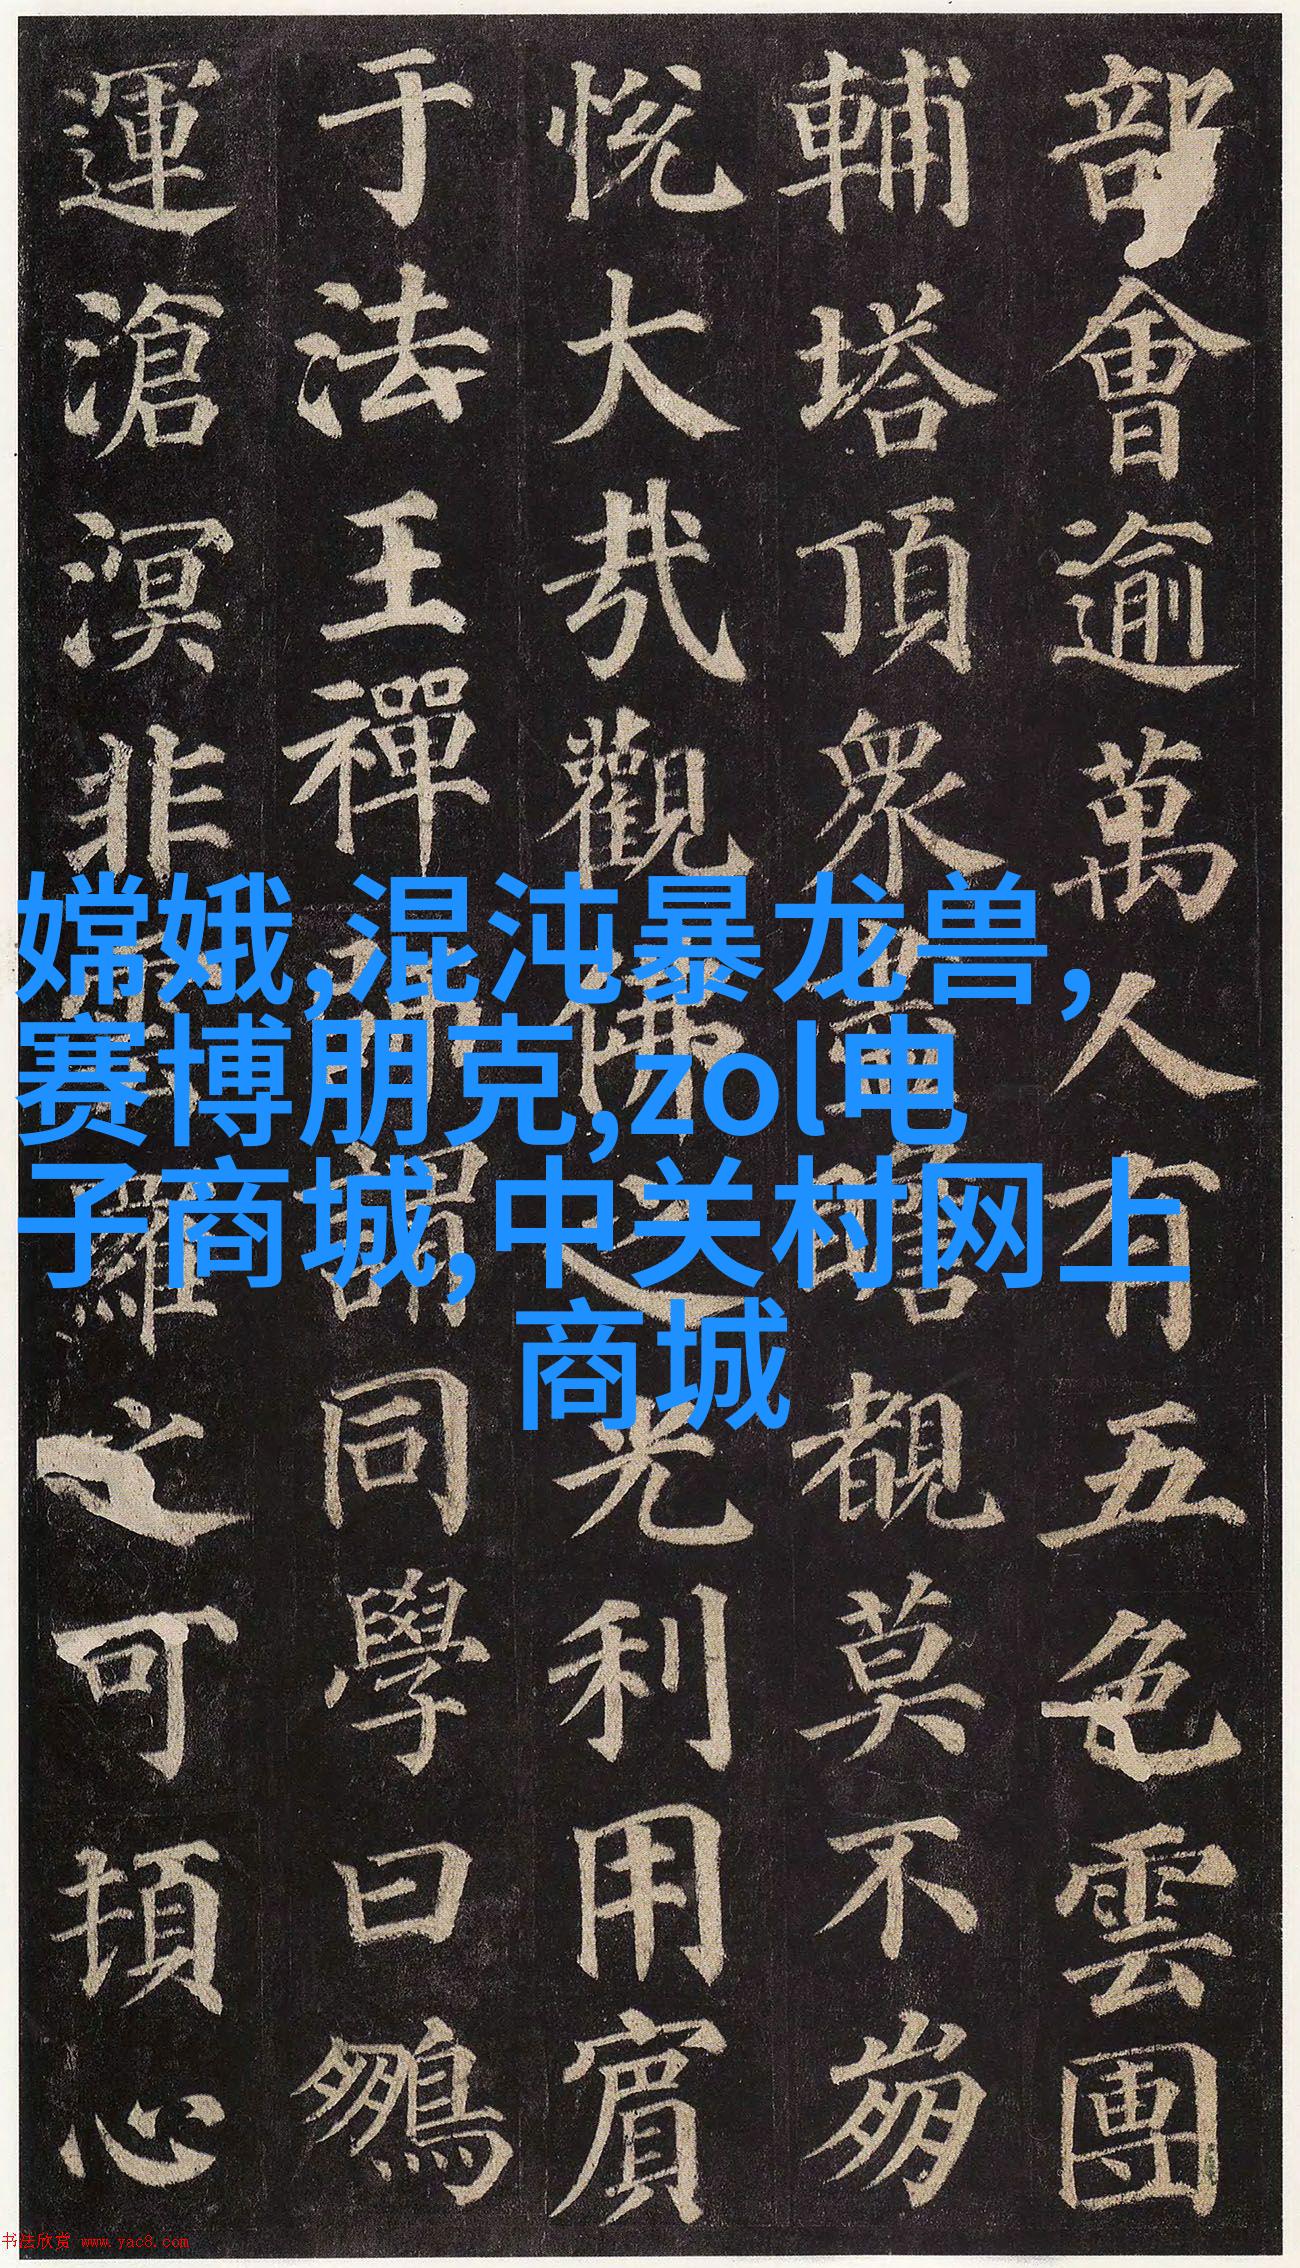 部會逾萬人有五色雲團
輔塔頂眾盡瞻覩莫不崩
悅大哉觀佛之光利用賓
于法王禪師謂同學曰鵬
運滄溟非雲羅之可頓心
嫦娥,混沌暴龙兽,
赛博朋克,zol电
子商城,中关村网上
商城
书法欣赏 www.yac8.com